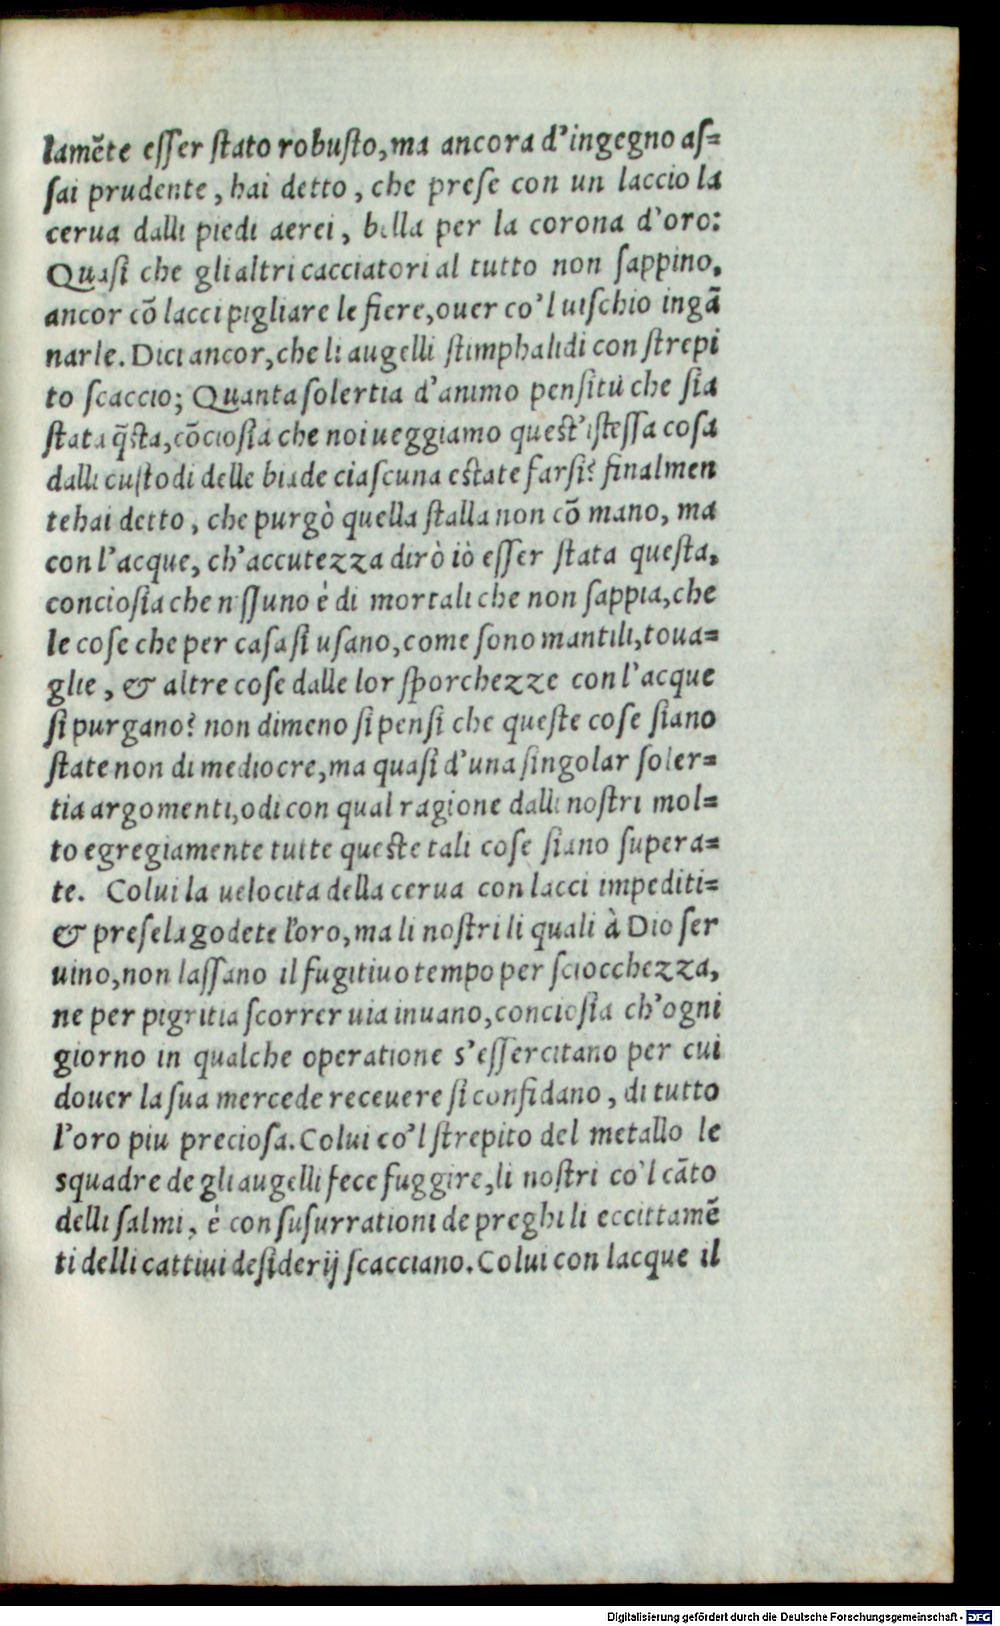 lamēte esser stato robusto, ma ancora d'ingegno as=
sai prudente, hai detto, che prese con un laccio la
cerua dalli piedi aerei, bella per la corona d'oro:
Quasi che gli altri cacciatori al tutto non sappino,
ancor cō lacci pigliare le fiere, ouer co'l uischio ingā
narle. Dici ancor, che li augelli stimphalidi con strepi
to scaccio; Quanta solertia d'animo pensi tù che sia
stata q̄sta, cōciosia che noi ueggiamo quest'istessa cosa
dalli custodi delle biade ciascuna estate farsi? finalmen
te hai detto, che purgò quella stalla non cō mano, ma
con l'acque, ch'accutezza dirò iò esser stata questa,
conciosia che nissuno è di mortali che non sappia, che
le cose che per casa si usano, come sono mantili, toua=
glie, & altre cose dalle lor sporchezze con l'acque
si purgano? non dimeno si pensi che queste cose siano
state non di mediocre, ma quasi d'una singolar soler=
tia argomenti, odi con qual ragione dalli nostri mol=
to egregiamente tutte queste tali cose siano supera=
te. Colui la uelocita della cerua con lacci impediti=
& prese la godete l'oro, ma li nostri li quali à Dio ser
uino, non lassano il fugitiuo tempo per sciocchezza,
ne per pigritia scorrer uia inuano, conciosia ch'ogni
giorno in qualche operatione s'essercitano per cui
douer la sua mercede receuere si confidano, di tutto
l'oro piu preciosa. Colui co'l strepito del metallo le
squadre de gli augelli fece fuggire, li nostri co'l cāto
delli salmi, è con susurrationi de preghi li eccittamē
ti delli cattiui desiderij scacciano. Colui con lacque il
Digitalisierung gefördert durch die Deutsche Forschungsgemeinschaft - DFG